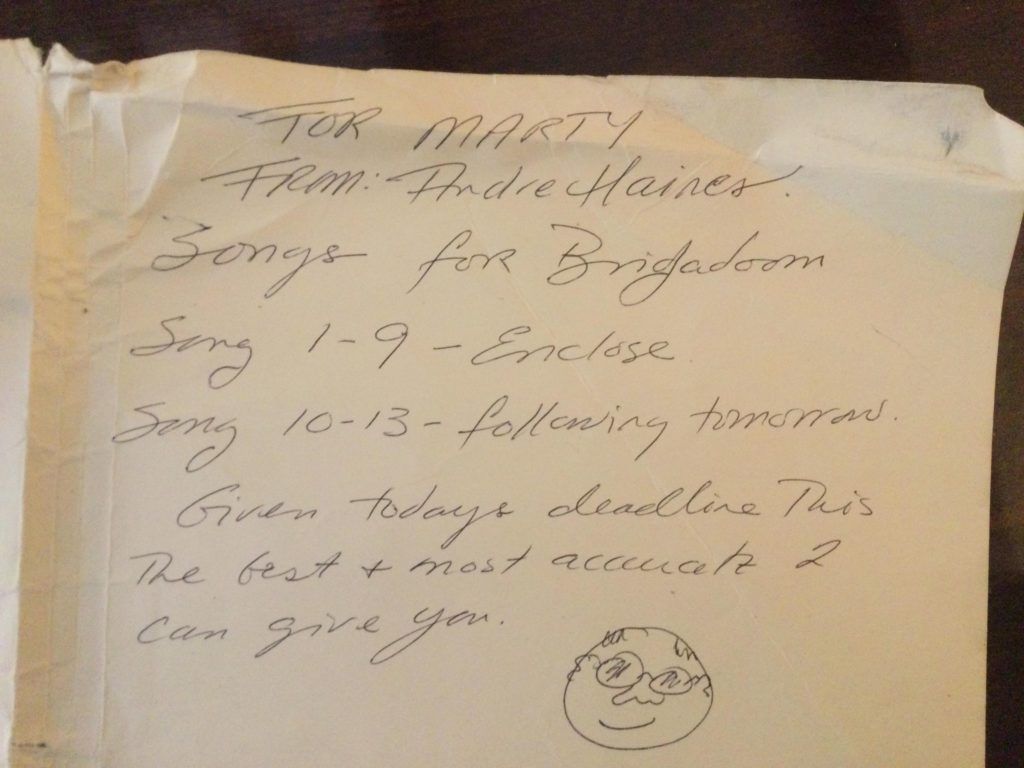 FOR MARTY
FROM: Andre Haines.
Songs for Brigadoom
Song 1-9 - Enclose
Song 10-13 - following tomorrow.
Given todays deadline This
The best + most accurate I
can give you.